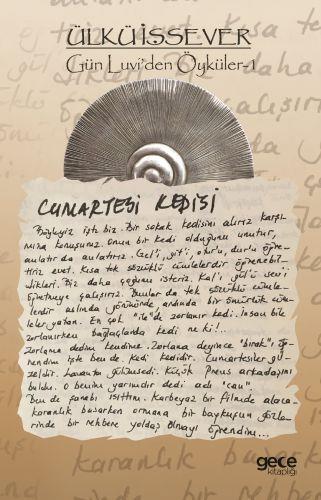 ÜLKÜ İSSEVER
Gün Luvi'den Öyküler-1
CUMARTESİ KEDİSİ
Böyleyiz işte biz. Bir sokak kedisini alırız karşı-
mıza konuşuruz. Ona bir kedi olduğunu unutur,
anlatır da anlatırız. Gel'i, git'i, otur'u, dur'u öğre-
tiriz evet. Kısa tek sözcüklü cümlelerdir öğrenebil-
dikleri. Biz daha çoğunu isteriz. Kal'ı, gül'ü, sev'i
öğretmeye çalışırız. Bunlar da tek sözcüklü cümle-
lerdir aslında görünürde ardında bir ömürlük cüm-
leler yatan. En çok "ile"de zorlanır kedi. İnsan bile
zorlanırken bağlaçlarda kedi ne ki!..
Zorlama dedim kendime. Zorlama deyince "bırak"ı öğ-
rendim işte ben de. Kedi kedidir. Cumartesiler gü-
zeldir. Lavanta gülümsedi. Küçük Prens arkadaşını
buldu. O benim yarımdır dedi adı "can".
Ben de sanabı ısıttım. Karbeyaz bir filmde alaca-
karanlık basarken ormana bir baykuşun gözle-
rinde bir rehbere yoldaş olmayı öğrendim...
gece
kitaplığı
karanlık basarken